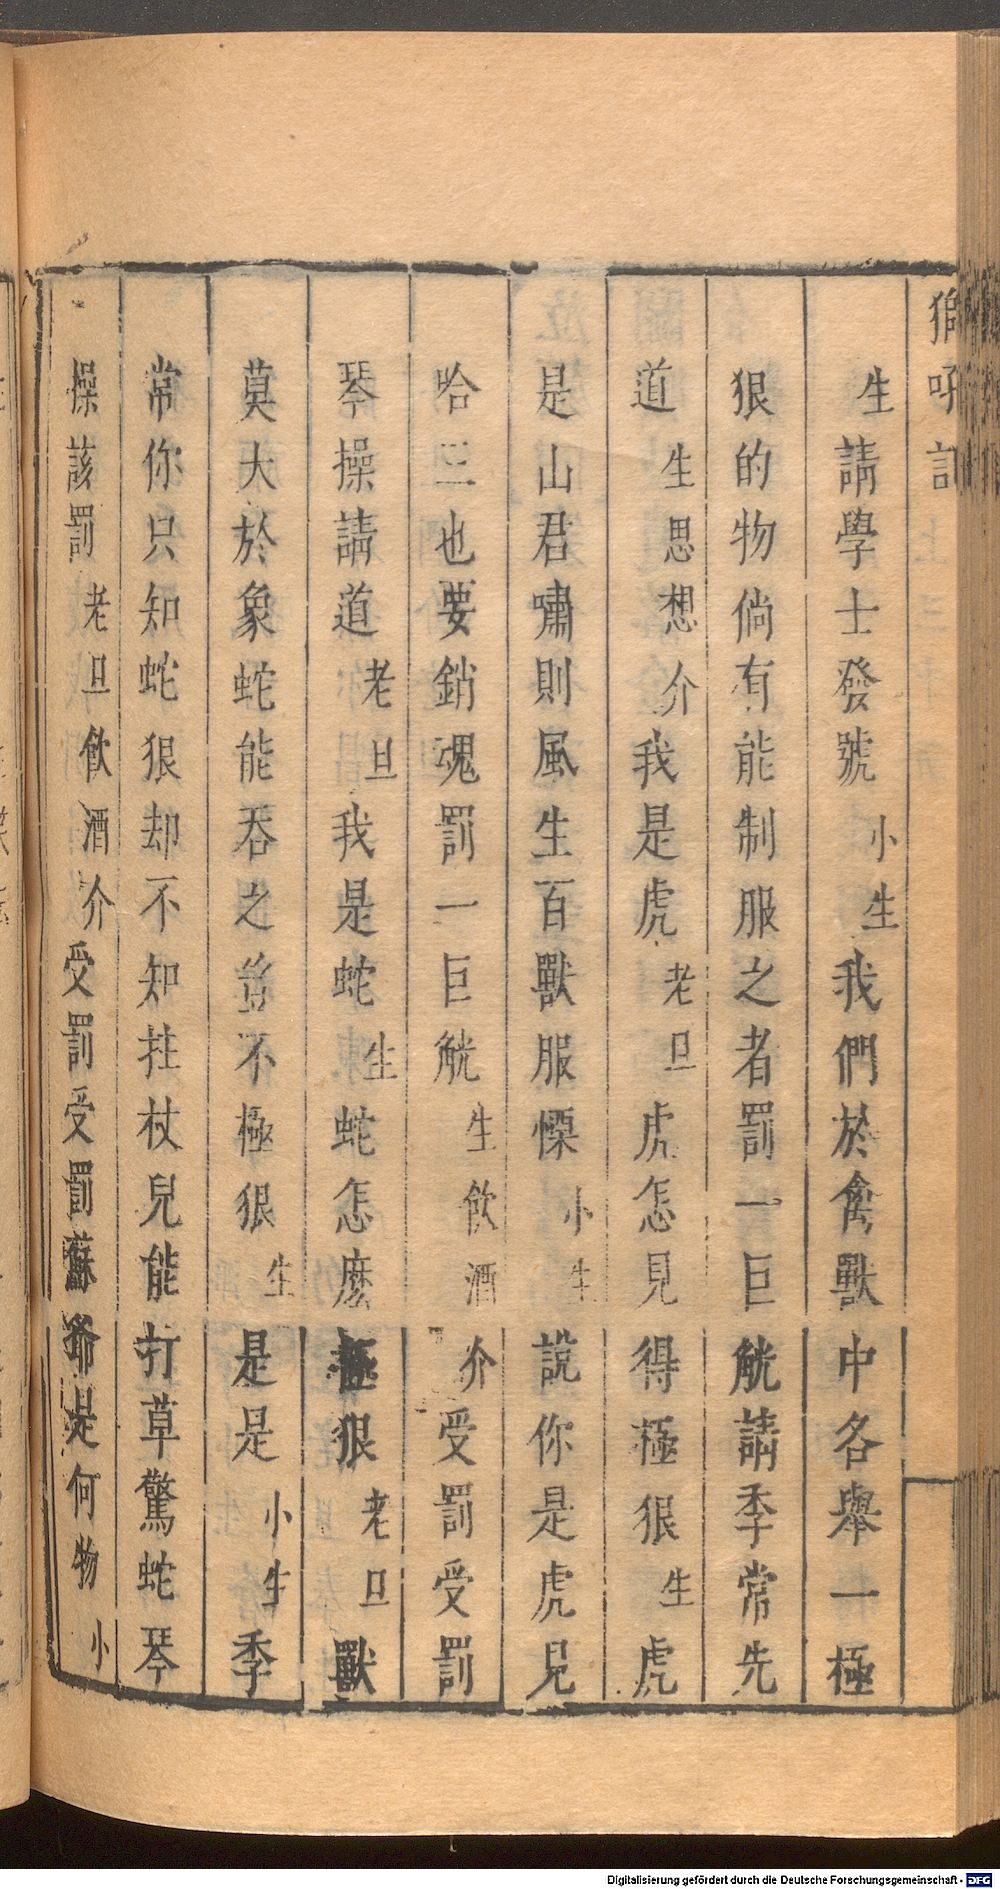 獅吼記
生請學士發號小生我們於禽獸中各舉一極
狠的物倘有能制服之者罰一巨觥請季常先
道生思想介我是虎老旦虎怎見得極狠生虎
是山君嘯則風生百獸服慄小生說你是虎兒
哈三也要銷魂罰一巨觥生飲酒介受罰受罰
琴操請道老旦我是蛇生蛇怎麽極狠老旦獸
莫大於象蛇能吞之豈不極狠生是是小生季
常你只知蛇狠却不知拄杖兒能打草驚蛇琴
操該罰老旦飲酒介受罰受罰蘇爺是何物小
Digitalisierung gefördert durch die Deutsche Forschungsgemeinschaft - DFG